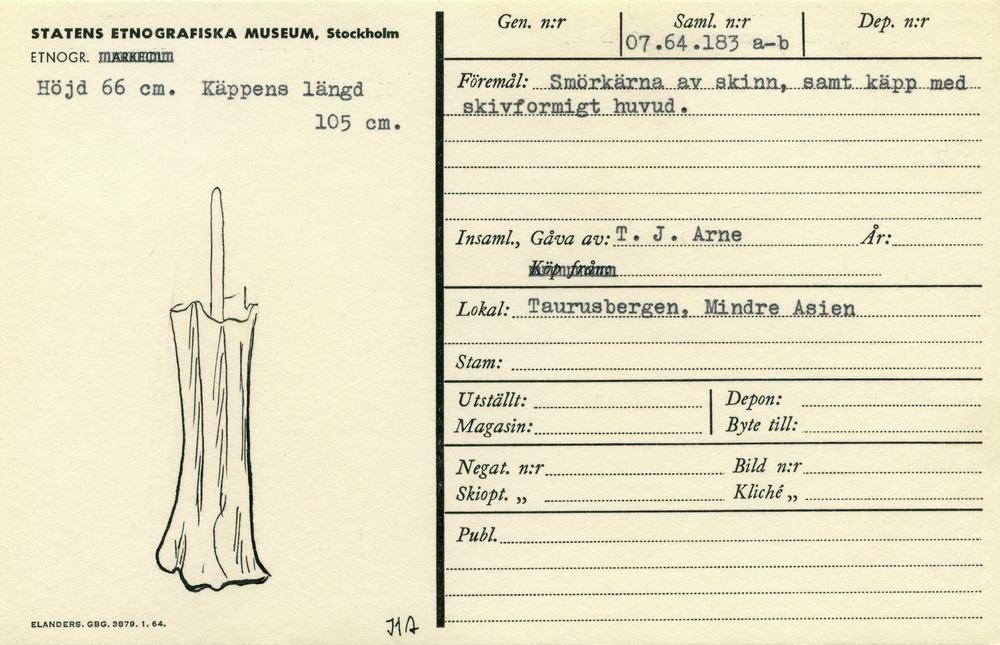 STATENS ETNOGRAFISKA MUSEUM, Stockholm
ETNOGR.
Höjd 66 cm. Käppens längd
105 cm.
ELANDERS. GBG. 3879. 1. 64.
Gen. n:r Saml. n:r Dep. n:r
07.64.183 a-b
Föremål: Smörkärna av skinn, samt käpp med
skivformigt huvud.
Insaml., Gåva av: T. J. Arne År:
Köp från
Lokal: Taurusbergen, Mindre Asien
Stam:
Utställt: Depon:
Magasin: Byte till:
Negat. n:r Bild n:r
Skiopt. „ Kliché „
Publ.